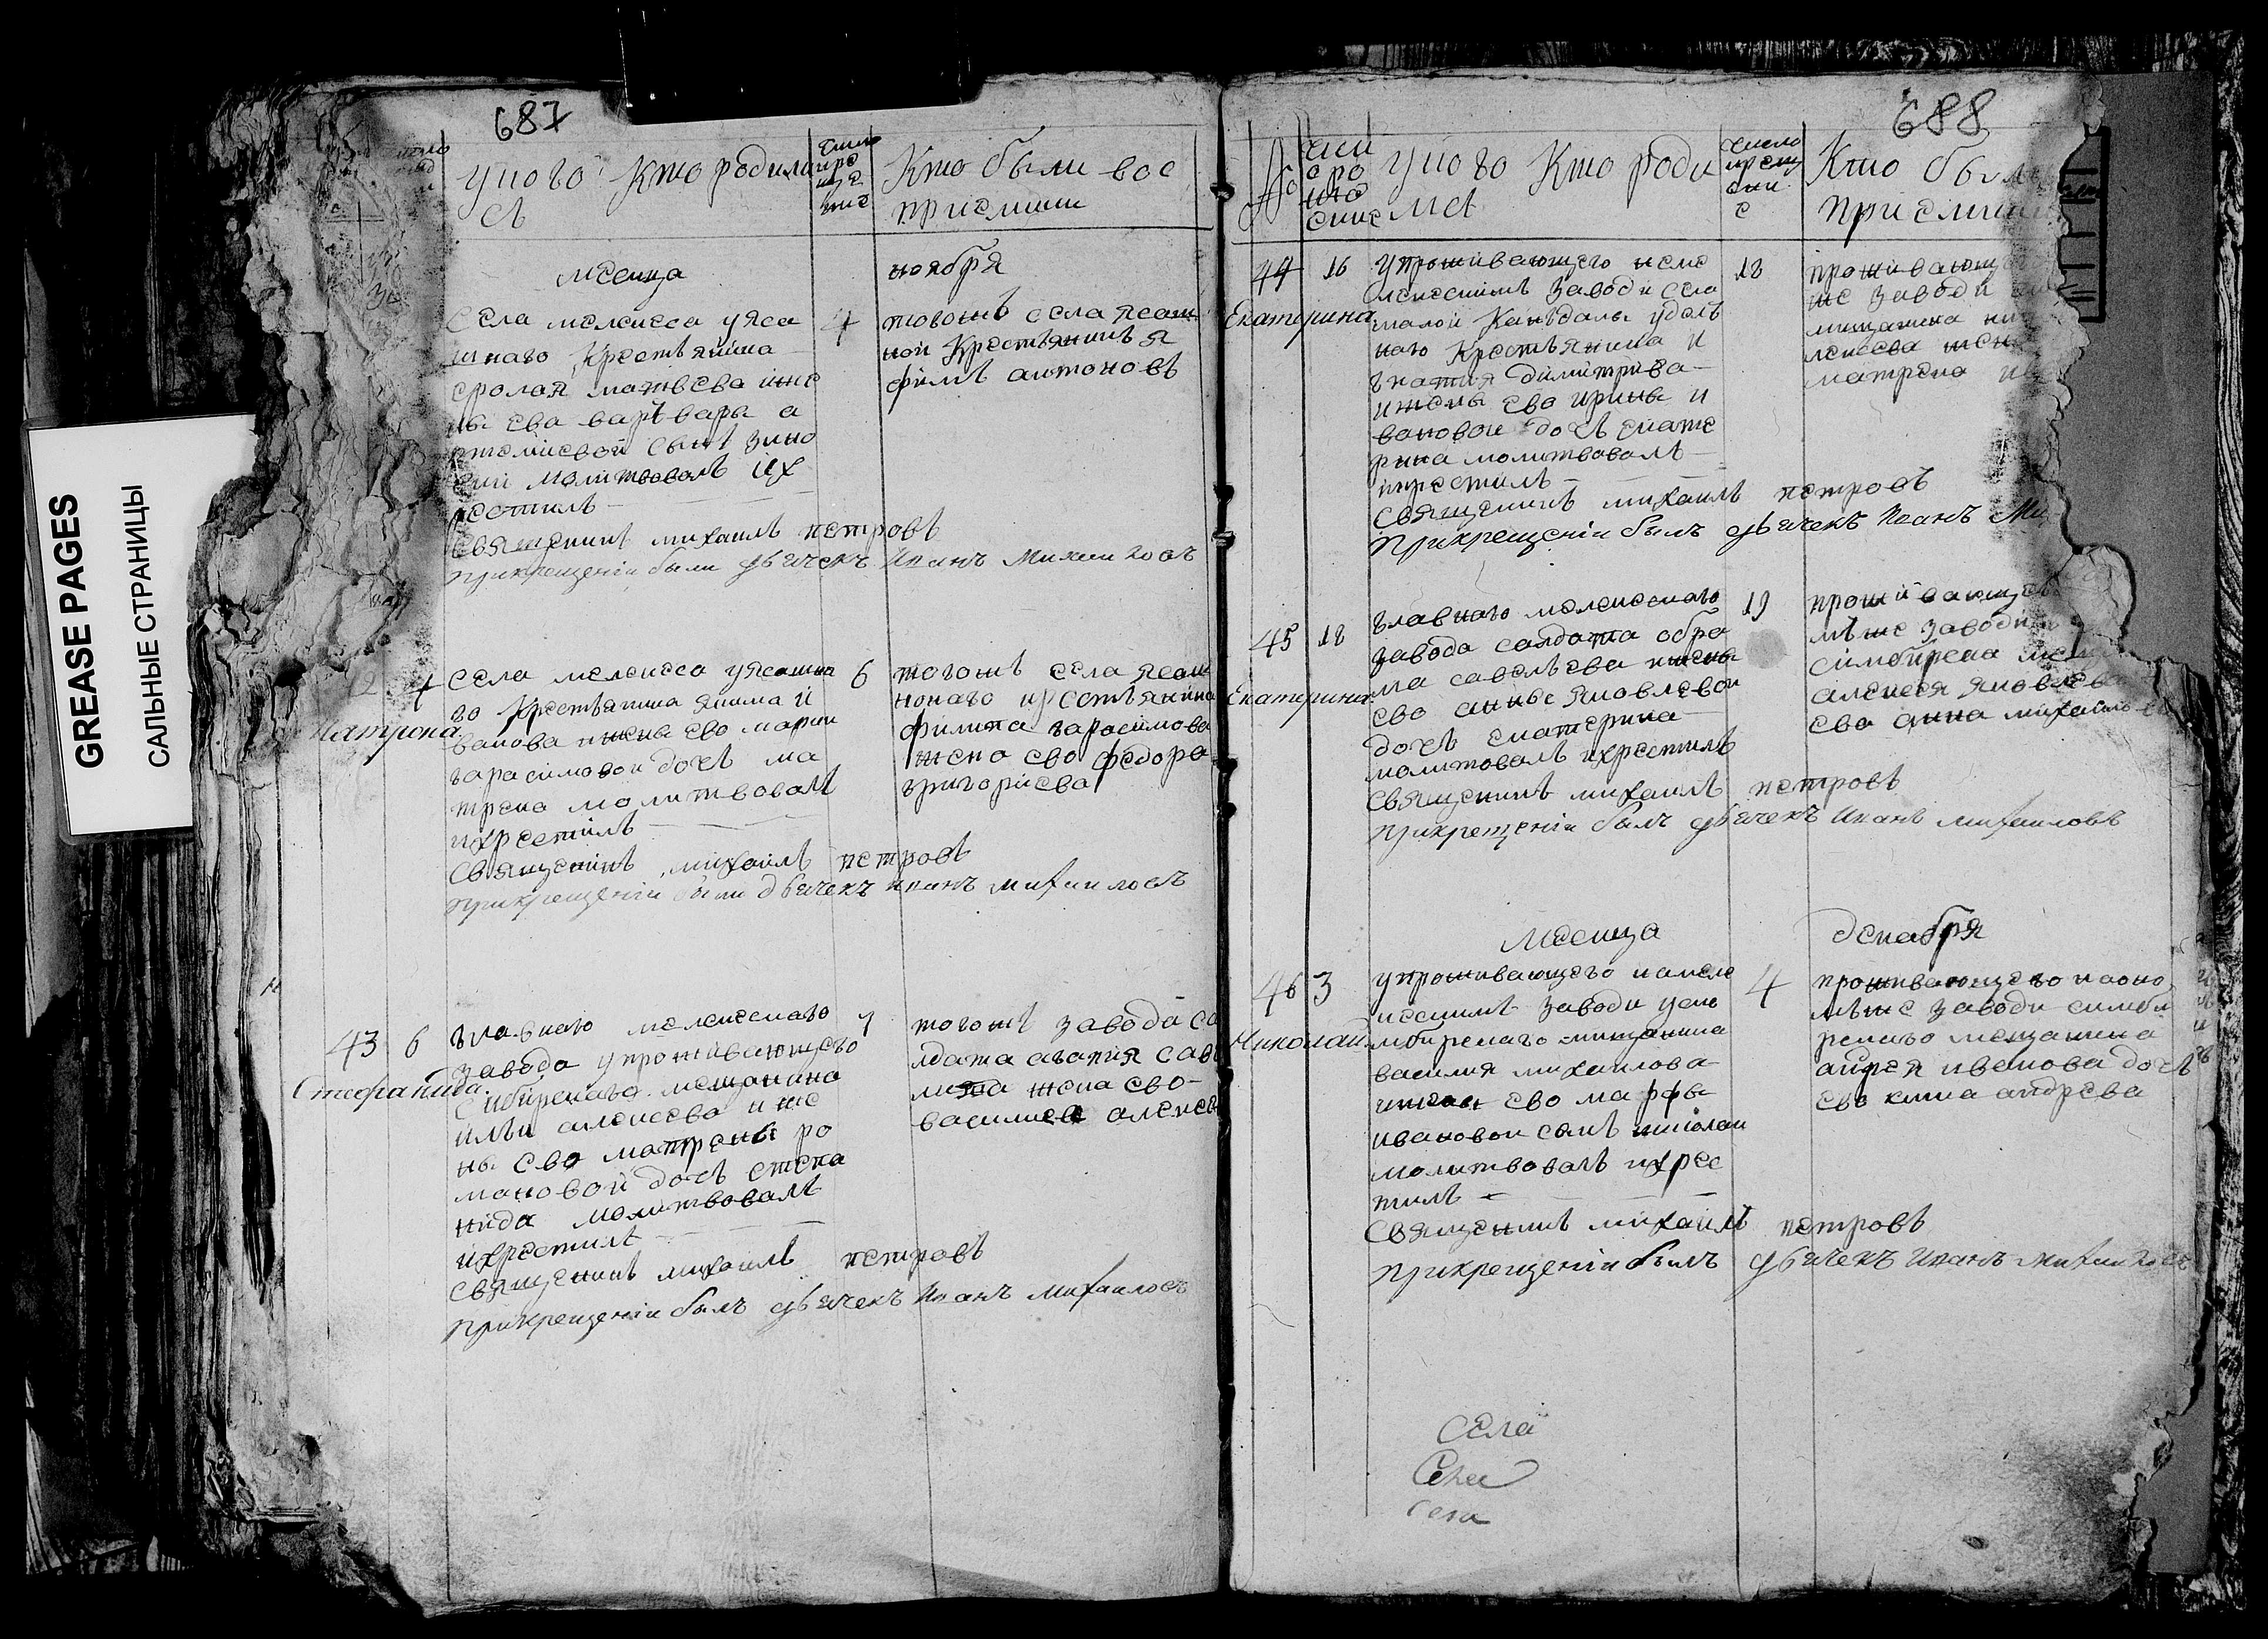 GREASE PAGES
САЛЬНЫЕ СТРАНИЦЫ
687
У кого кто родила
сь
число
кре
ще
ние
Кто были вос
приемники
месяца
ноября
села мелекеса у яса
шнаго крестьянина
фролая матвеева ижe
ны ево варъвары а
ртемиевой сынъ зино
вий молитвовалъ их
рестилъ
священникъ михаилъ петровъ
При крещении были дьячекъ Иванъ Михаиловъ
4
тогожъ села ясаш
ной крестьянинъ я
фимъ антоновъ
4
Матрона
села мелекеса у ясашна
го крестьянина якима и
ванова ижены ево марии
гарасимовой дочь ма
трена молитвовалъ
ихрестилъ
священникъ михаилъ петровъ
При крещении были дьячекъ Иванъ михаиловъ
6
тогожъ села ясаш
нонаго крестьянина
филипа гарасимова
жена ево федора
григориева
43
6
Стефанида
главнаго мелекескаго
завода у проживающего
сибирскаго мещанина
ильи алексева и же
ны ево матрены ро
мановой дочь степа
нида молитвовалъ
ихрестилъ
священникъ михаилъ петровъ
При крещении былъ дьячекъ Иванъ Михаиловъ
7
тогожъ завода со
лдата агапия саве
жена ево
василиса алексе
688
№
У кого кто роди
лся
число
крещ
ени
е
Кто были
приемники
44
16
Екатерина
у проживающего в меле
кескомъ заводи села
малой Кандалы удель
наго крестьянина и
гнатия димитрива
ижены ево ирины и
вановой дочь екате
рина молитвовалъ
икрестилъ
священникъ михаилъ петровъ
При крещении былъ дьячекъ Иванъ Ми
18
проживающ
же заводи
мищанина
лексева жен
матрена
45
18
Екатерина
главнаго мелекескаго
завода салдата обра
ма савельева ижены
ево анны яковлевой
дочь екатерина
молитовалъ ихрестилъ
священникъ михаилъ петровъ
При крещении былъ дьячекъ Иванъ михаиловъ
19
проживающ
мъже заводи
симбирска
алексея яковлева
ево анна михаило
месяца
декабря
46
3
Николай
у проживающего на меле
кескомъ заводи у си
мбирскаго мищанина
василия михаилова
ижены ево марфы
ивановой сынъ николаи
молитвовалъ ихрес
тилъ
священникъ михаилъ петровъ
При крещении былъ дьячекъ Иванъ михаиловъ
4
проживающего наоно
мъже заводи симби
рскаго мещанина
андрея ивенова дочь
ево анна андрева
Села
Села
села